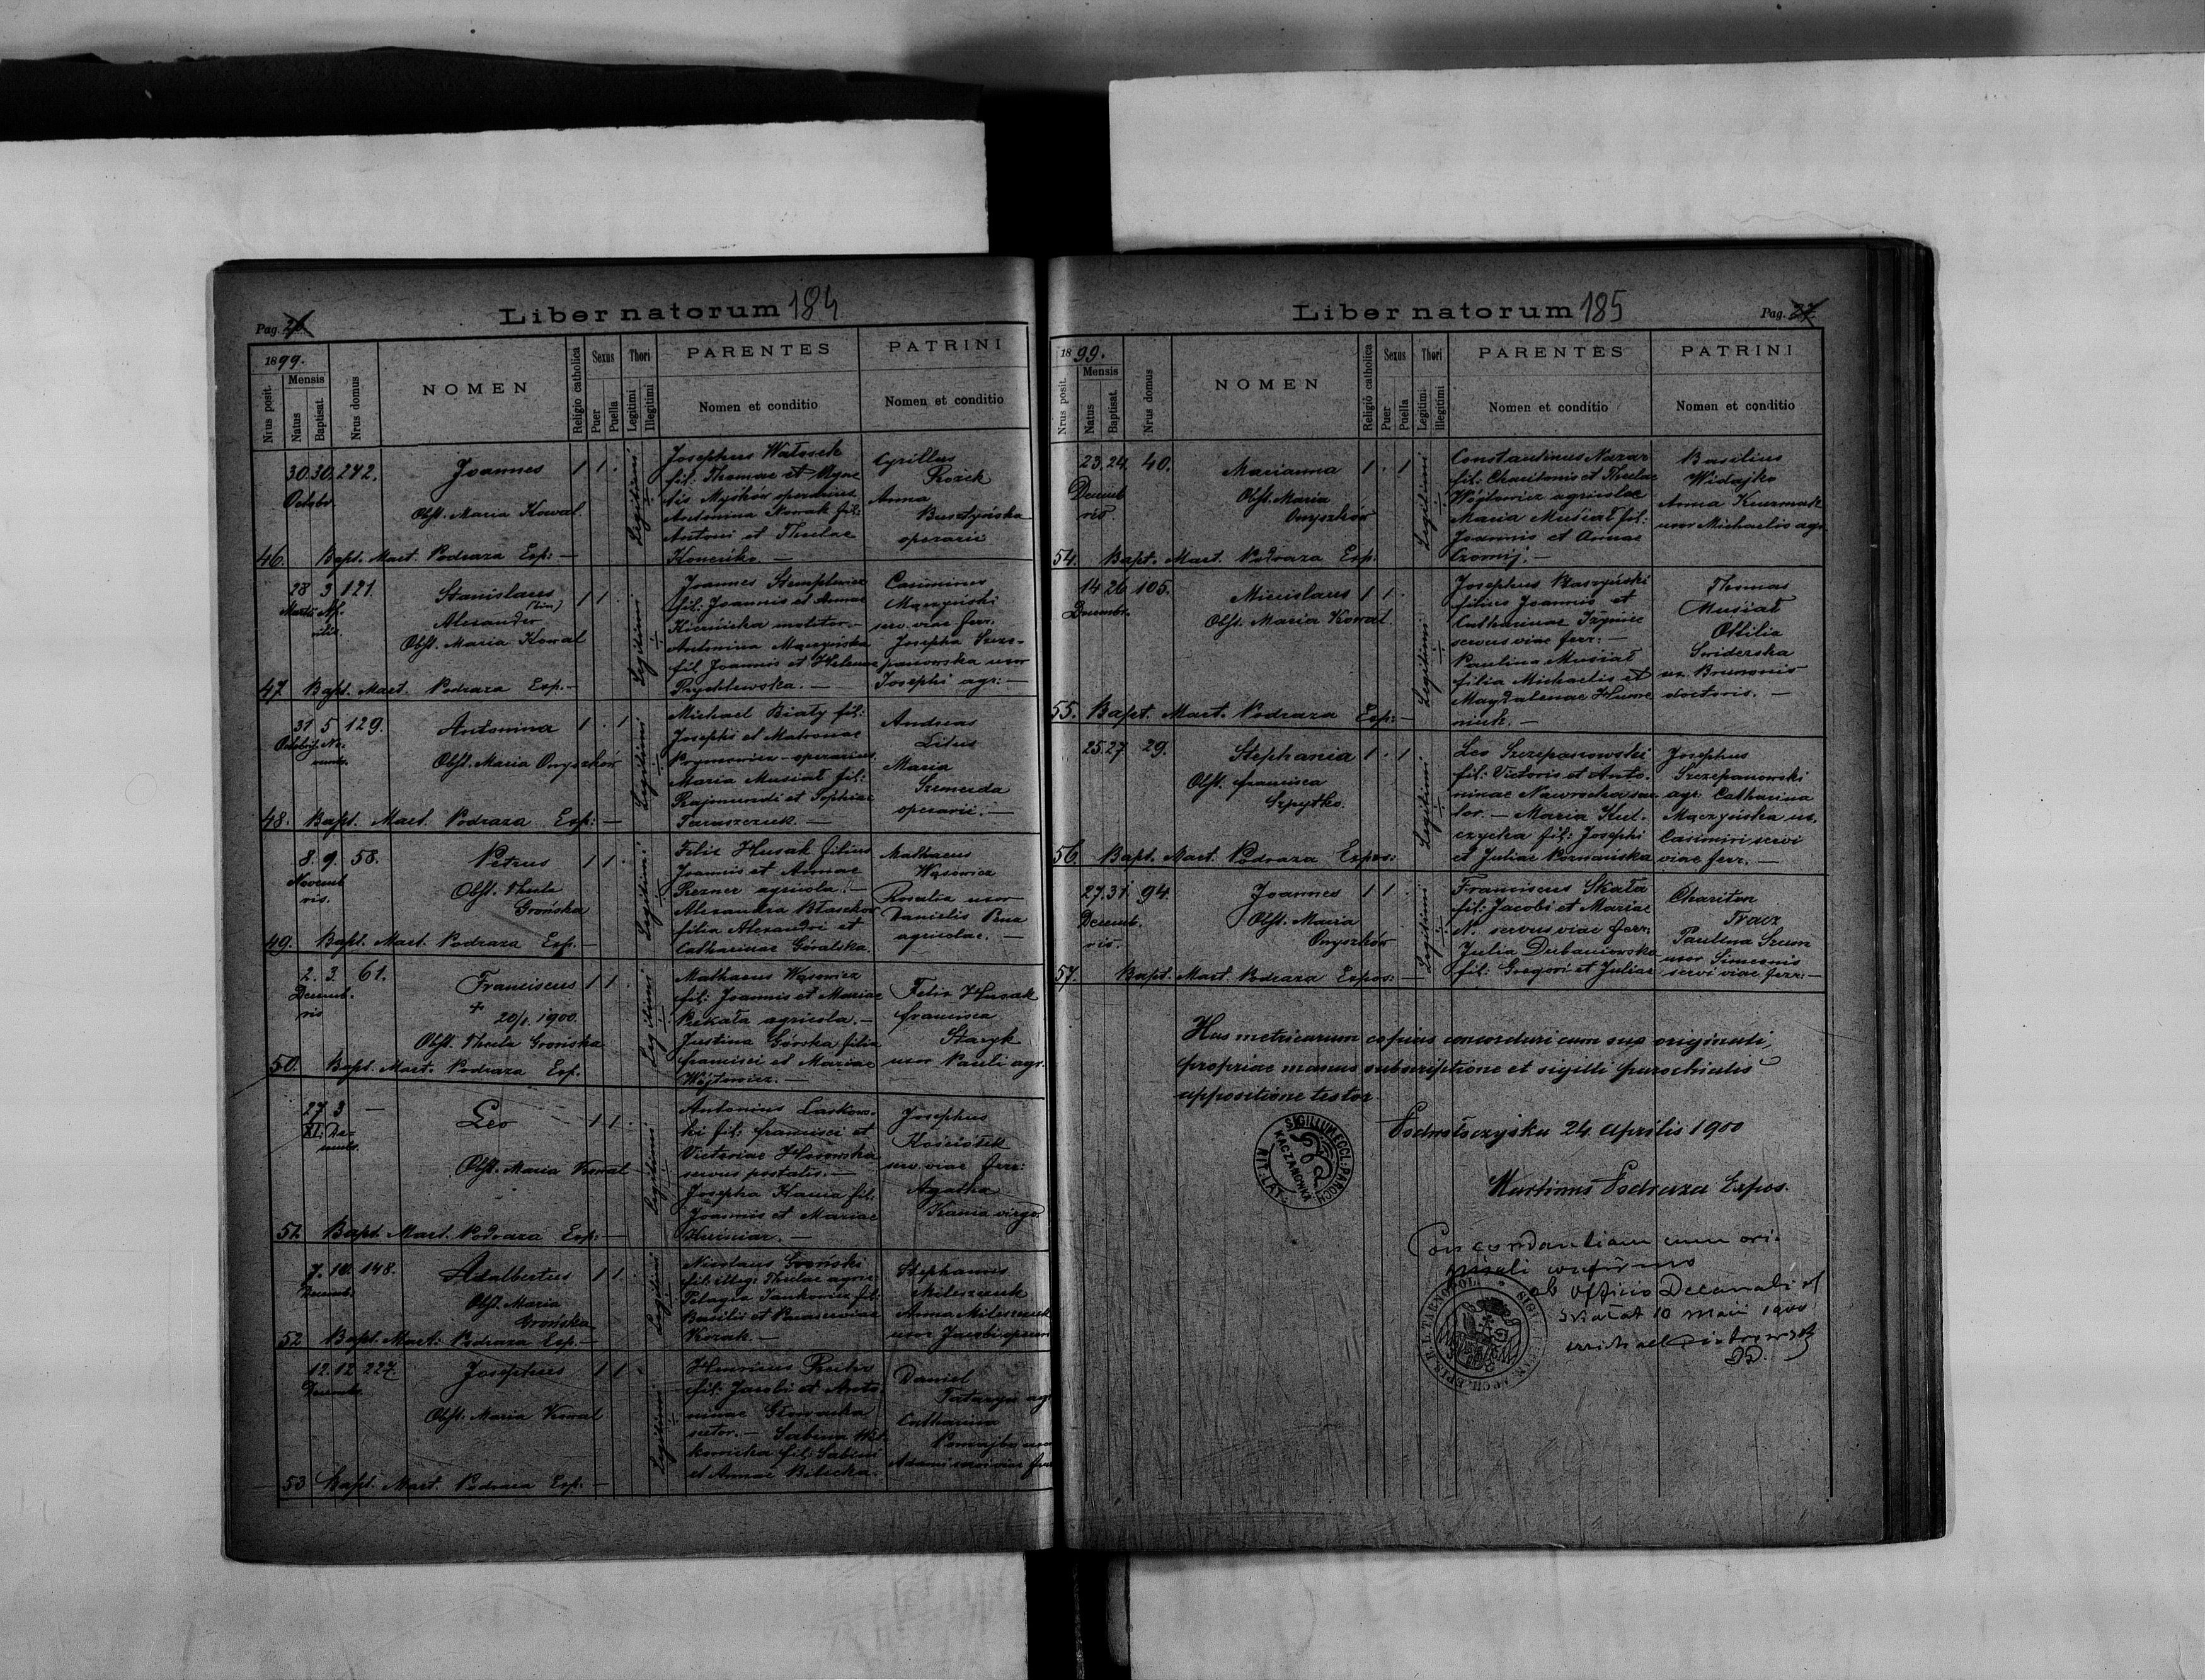 Pag. 26
Liber natorum 184
1899.
Nrus posit.
Mensis
Natus
Baptisat.
Nrus domus
NOMEN
Religio catholica
Sexus
Puer
Puella
Thori
Legitimi
Illegitimi
PARENTES
Nomen et conditio
PATRINI
Nomen et conditio
30. 30. 242.
Octobr.
Joannes
Obst. Maria Kowal
1 1 .
Legitimi
Josephus Watosek
fil: Thomae et Agne
tis operarius
Antonina Nowak fil:
Antoni et Theclae
Cyrillus
Rożek
Anna
operarii
46. Bapt. Mart. Podraza Exp: —
28 3 121.
Stanislaus
Alexander
Obst. Maria Kowal
1 1 .
Legitimi
Joannes
fil: Joannis et Annae
molitor. —
Antonina Mączyńska
fil. Joannis et Helenae
Rychlewska. —
Casimirus
Mączyński
serv. viae ferr.
Josepha Szcze-
panowska uxor
Josephi agr: —
47. Bapt. Mart. Podraza Exp. —
31 5 129.
Antonina
Obst. Maria Onyszków
1 . 1
Legitimi
Michael Biały fil:
Josephi et Matronae
operarius.
Maria Musiał fil:
Rajmundi et Sophiae
Taraszczuk. —
Andreas
Litus
Maria
Szemerda
operarii. —
48. Bapt. Mart. Podraza Exp: —
8. 9. 58.
Novemb
ris.
Petrus
Obst. Thecla
Grońska
1 1 .
Legitimi
Felix Husak filius
Joannis et Annae
Rezner agricola. —
Alexandra Błaszków
filia Alexandri et
Catharinae Góralska.
Mathaeus
Wąsowicz
Rosalia uxor
Danielis
agricolae. —
49. Bapt. Mart. Podraza Exp. —
2. 3. 61.
Decemb.
ris
Franciscus
+
20/1. 1900.
Obst. Thecla Grońska
1 1 .
Legitimi
Mathaeus Wąsowicz
fil: Joannis et Mariae
Piekała agricola. —
Justina Górska filia
Francisci et Mariae
Wójtowicz. —
Felix Husak
Francisca
Staryk
uxor Pauli agr.
50. Bapt. Mart. Podraza Exp.
27 3 —
XI. De-
cemb.
Leo
Obst. Maria Kowal
1 1 .
Legitimi
Antonius Laskow-
ki fil: Francisci et
Victoriae
servus postalis. —
Josepha Kania fil.
Joannis et Mariae
Josephus
Kościołek
serv. viae ferr:
Agatha
Kania virgo
51. Bapt. Mart. Podraza Exp: —
7. 10. 148.
Decemb.
Adalbertus
Obst. Maria
Grońska
1 1 .
Legitimi
Nicolaus Groński
fil: illeg: Theclae agric.
Pelagia Jankowicz fil:
Basilii et Parasceviae
Kozak. —
Stephanus
Mileszczuk
Anna Mileszczuk
uxor Jacobi operari
52 Bapt. Mart. Podraza Exp. —
12. 12 227.
Decemb.
Josephus
Obst. Maria Kowal
1 1 .
Legitimi
Henricus
fil: Jacobi et Anto
ninae Głowacka
sutor. — Sabina
fil: Sabini
et Annae Bilecka.
Daniel
agr
Catharina
uxor
Adami servi viae ferr
53 Bapt. Mart. Podraza Exp. —
Liber natorum 185
Pag. 27
1899.
Nrus posit.
Mensis
Natus
Baptisat.
Nrus domus
NOMEN
Religio catholica
Sexus
Puer
Puella
Thori
Legitimi
Illegitimi
PARENTES
Nomen et conditio
PATRINI
Nomen et conditio
23. 24. 40.
Decemb
ris.
Marianna
Obst. Maria
Onyszków
1 . 1
Legitimi
Constantinus Nazar
fil: Charitonis et Theclae
Wójtowicz agricolae
Maria Musiał fil:
Joannis et Annae
Czornij. —
Basilius
Widajko
Anna
uxor Michaelis agr.
54. Bapt. Mart. Podraza Exp:
14 26 105.
Decembr.
Miecislaus
Obst. Maria Kowal.
1 1 .
Legitimi
Josephus
filius Joannis et
Catharinae
servus viae ferr: —
Paulina Musiał
filia Michaelis et
Magdalenae Hume
niuk. —
Thomas
Musiał
Ottilia
Swiderska
ux. Brunonis
doctoris. —
55. Bapt. Mart. Podraza Exp: —
25. 27 29.
Stephania
Obst. Francisca
Szpytko.
1 . 1
Legitimi
Leo Szczepanowski
fil: Victoris et Anto-
ninae Nawrocka sar
tor. — Maria Kul-
czycka fil: Josephi
et Juliae Poznańska
Josephus
Szczepanowski
agr. Catharina
Mączyńska ux.
Casimiri servi
viae ferr. —
56. Bapt. Mart. Podraza Expos:
27. 31 94.
Decemb.
ris.
Joannes
Obst. Maria
Onyszków
1 1 .
Legitimi
Franciscus Skała
fil: Jacobi et Mariae
N. servus viae ferr:
Julia Dubaniowska
fil: Gregori et Juliae
Chariton
Tracz
Paulina Szum
uxor Simeonis
servi viae ferr: —
57. Bapt. Mart. Podraza Expos: —
Has metricarum copias concordari cum suo originali,
propriae manus subscriptione et sigilli parochialis
appositione testor.
Podwołoczyska 24. Aprilis 1900
Martinus Podraza Expos.
SIGILLUM ECCL. PAROCH.
RIT. LAT.
KACZANÓWKA
Concordantiam cum ori-
ginali confirmo
ab Officio Decanali
10 Maii 1900